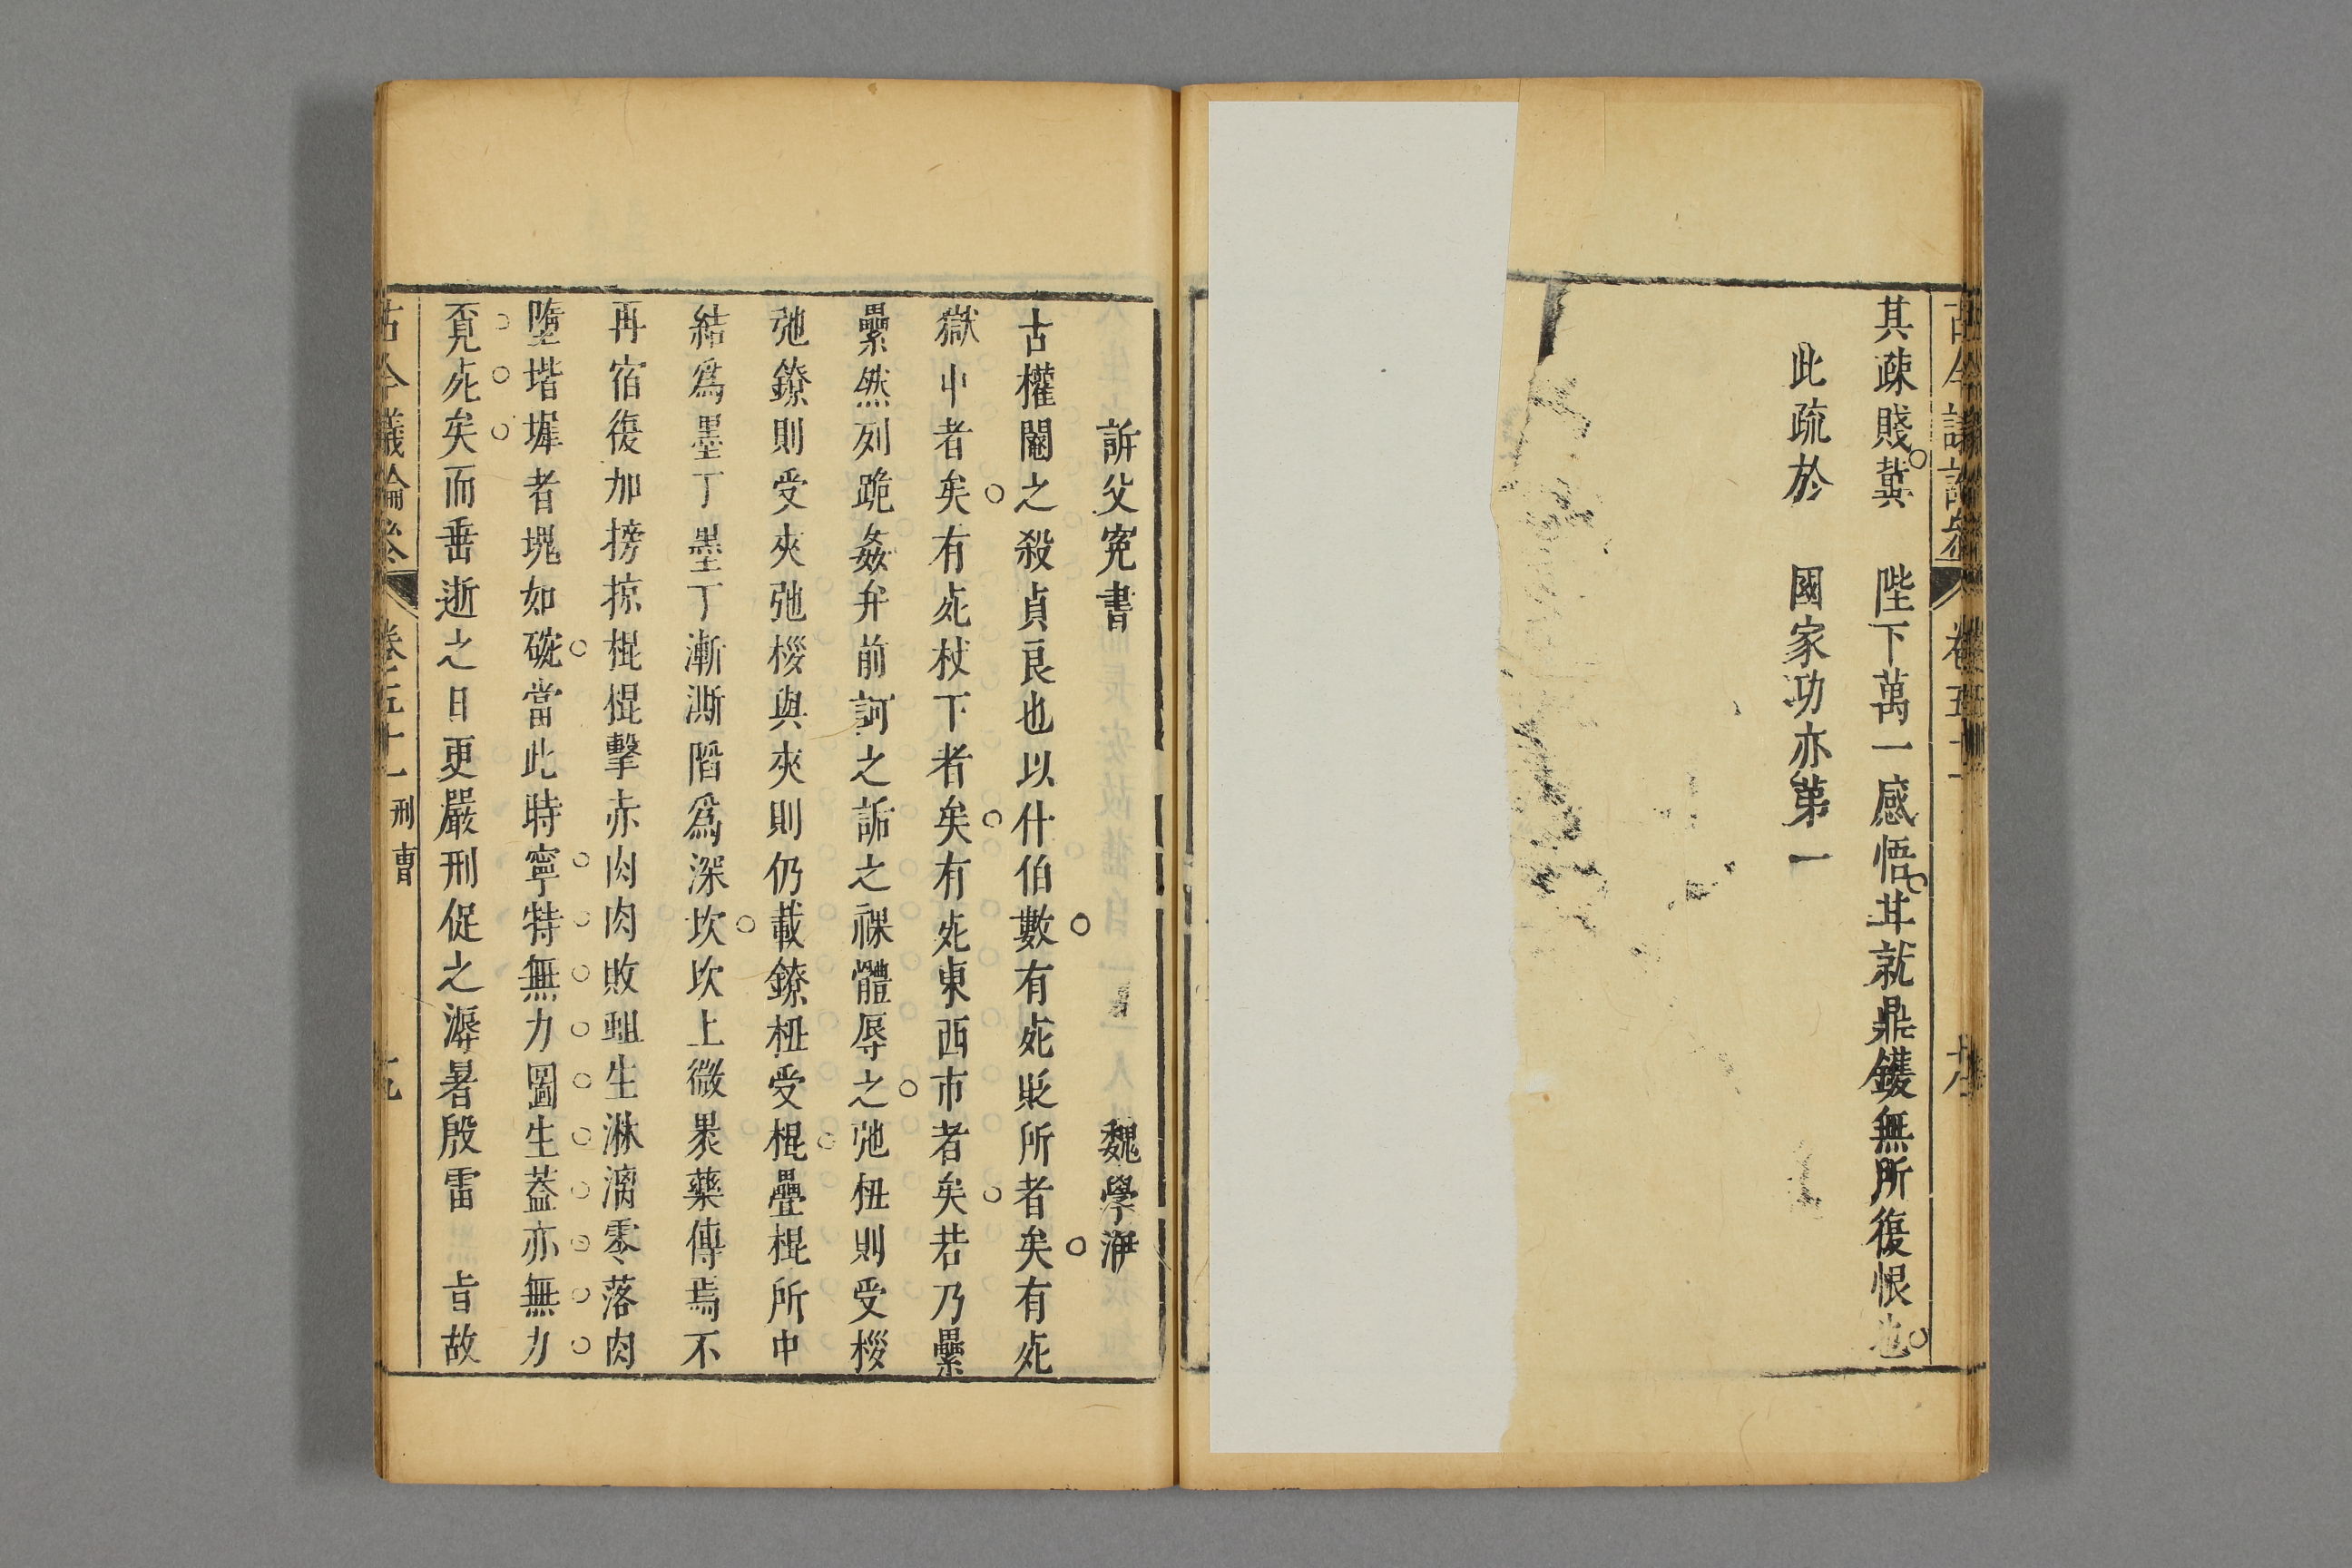 古今議論參 卷五十一 十八
其疎賤冀 陛下萬一感悟耳就鼎鑊無所復恨也
此疏於 國家功亦第一
訴父寃書 魏學洢
古權閹之殺貞良也以什伯數有死貶所者矣有死
獄中者矣有死杖下者矣有死東西市者矣若乃纍
纍然列跪姦弁前訶之詬之裸體辱之弛杻則受桚
弛鐐則受夾弛桚與夾則仍載鐐杻受棍疊棍所中
結爲墨丁墨丁漸漸陷爲深坎坎上微累藥傅焉不
再宿復加搒掠棍棍擊赤肉肉敗蛆生淋漓零落肉
墮堦墀者塊如碗當此時寧特無力圖生葢亦無力
覔死矣而垂逝之日更嚴刑促之溽暑殷雷 㫖故
古今議論參 卷五十一 刑曹 十九